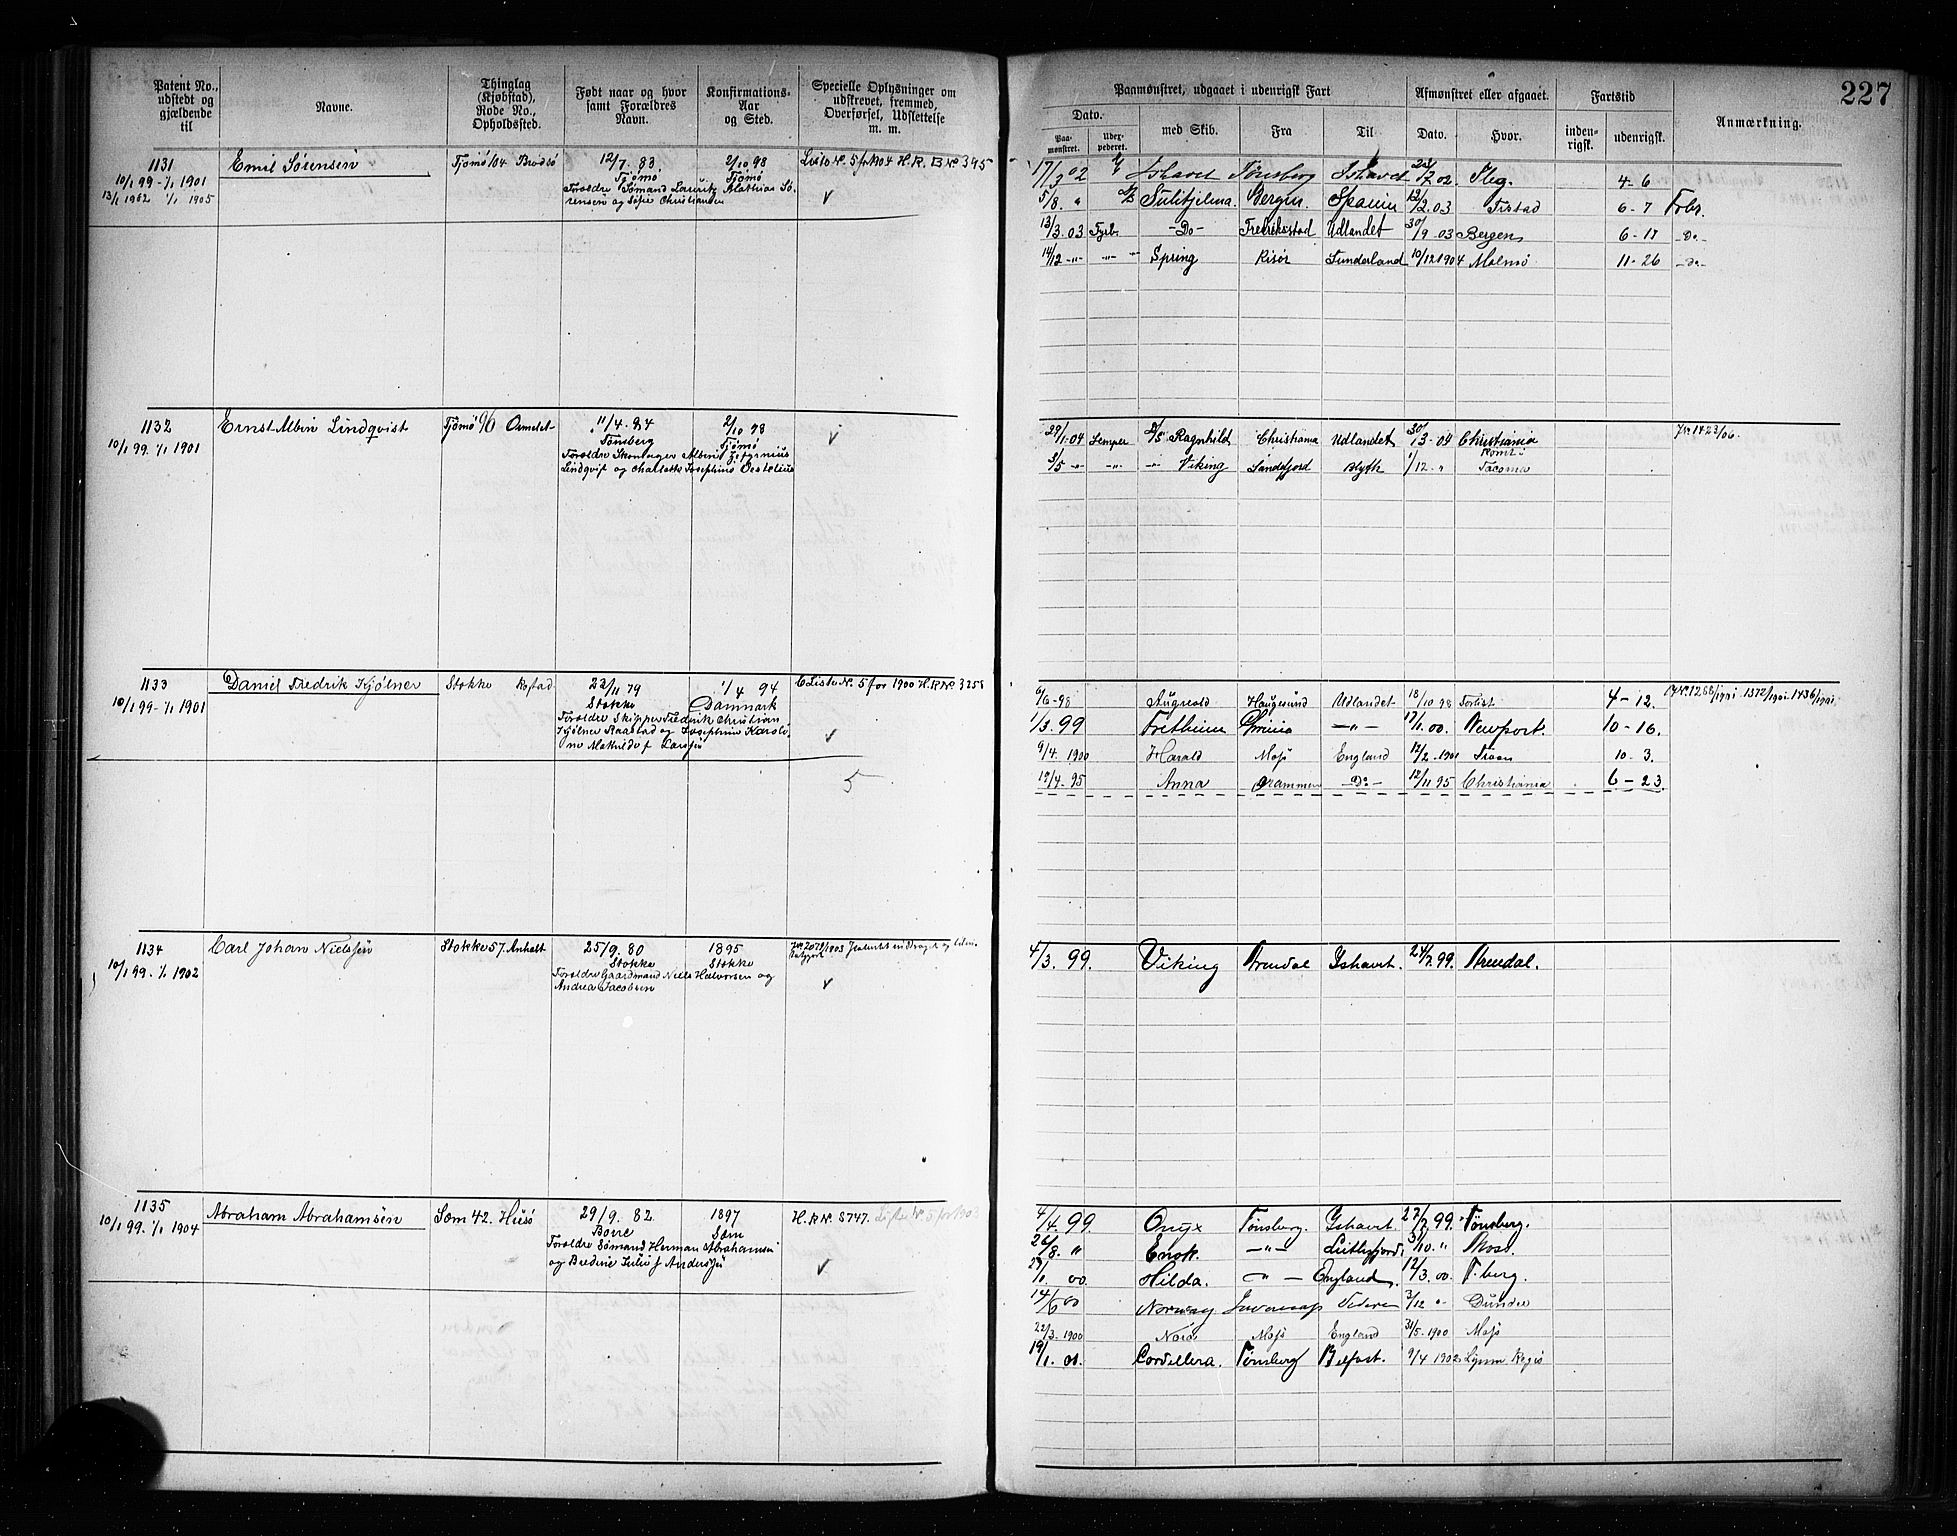 227
Patent No., udstedt og gjældende til
Navne.
Thinglag (Kjøbstad), Rode No., Opholdssted.
Født naar og hvor samt Forældres Navn.
Konfirmations- Aar og Sted.
Specielle Oplysninger om udskrevet, fremmed, Overførsel, Udslettelse m. m.
Paamønstret, udgaaet i udenrigsk Fart
Dato.
Paa- mønstret.
Uder- pederet.
med Skib.
Fra
Til
Afmønstret eller afgaaet.
Dato.
Hvor.
Fartstid
inden- rigsk.
udenrigsk.
Anmærkning.
1131 Emil Sörensen Tjömö 104 Brodsö 12/7. 83 2/10 98 Liste No. 5 for 1904 H.R. B No 395
10/1 99 - 1/1 1901 Tjömö Tjömö
13/1 1902 1/1 1905 Foreldre Sömand Lauritz Mathias Sö
rensen og Sofie Christiansen V
17/3 02 Ishavet Tönsberg Ishavet /7 02. 4-6
5/8. " Sulitjelma. Bergen Spanien 12/2. 03 Fr.stad 6-7 Forbr.
13/3. 03 -Do- Fredrikstad Udlandet 30/9 03 Bergen 6-17 -Do-
14/12 -"- -"- Spring Risör Sunderland 10/12 1904 Malmö 11-26 -Do-
1132 Ernst Albin Lindqvist Tjömö 96 Ormelet 11/4. 84 2/10 98 V
10/1 99. 1/1 1901 Tönsberg Tjömö
Foreldre Skomager Albin
Lindqvist og Charlotte Josephine
29/1. 04 Semper Ragnhild Christiania Udlandet 30/3-04 Christiania J.No 1423/06.
3/5 -"- -"- " Viking Sandefjord Blyth 1/12 " Rømt i
Tacoma
1133 Daniel Fredrik Kjölner Stokke Rostad 22/11 79 1/4 94 Liste No. 5 for 1900 H.R. No 3258
10/1 99 - 1/1 1901 Stokke Danmark
Foreldre Skipper Fredrik Christian
Kjölner Raastad og Josephine Karoli
ne Mathilde f. Larsen V
5
6/6-98 Augvald Haugesund Udlandet 18/10 98 4-12. J.No. 1268/1901. 1372/1901. 1436/1901.
1/3. 99 Fretheim -"- 17/1. 00. Newport. 10-16.
9/4. 1900 Harald Moss England 12/2. 1901 10-3.
19/4. 95 Anna Drammen -Do- 12/11 95 Christiania 6-23.
1134 Carl Johan Nielsen Stokke 57. Anholt 25/9. 80 1895
10/1 99. 1/1 1902 Stokke Stokke
Foreldre Gaardmand Niels Halvorsen og
Andrea Jacobsen V
4/3. 99. Viking Arendal Ishavet. 24/7. 99. Arendal.
1135 Abraham Abrahamsen Sem 42. Husö 29/9. 82. 1897 H.R. No. 8747. Liste No 5 for 1903
10/1 99. 1/1 1904 Borre Sem
Foreldre Sömand Herman Abrahamsen
og Bredine Julie f. Andersen V
4/4. 99. Onyx Tönsberg. Ishavet. 27/7. 99. Tönsberg.
26/8. " Enok. -"- 31/10. " Moss.
29/1. 00 Hilda. -"- England. 12/3. 00. T.berg.
14/6 00 Norway 3/12 " Dundee
22/3. 1900 Moss England 31/5. 1900 Moss
19/1. 01. Cordillera. Tönsberg Belfast. 9/4 1902